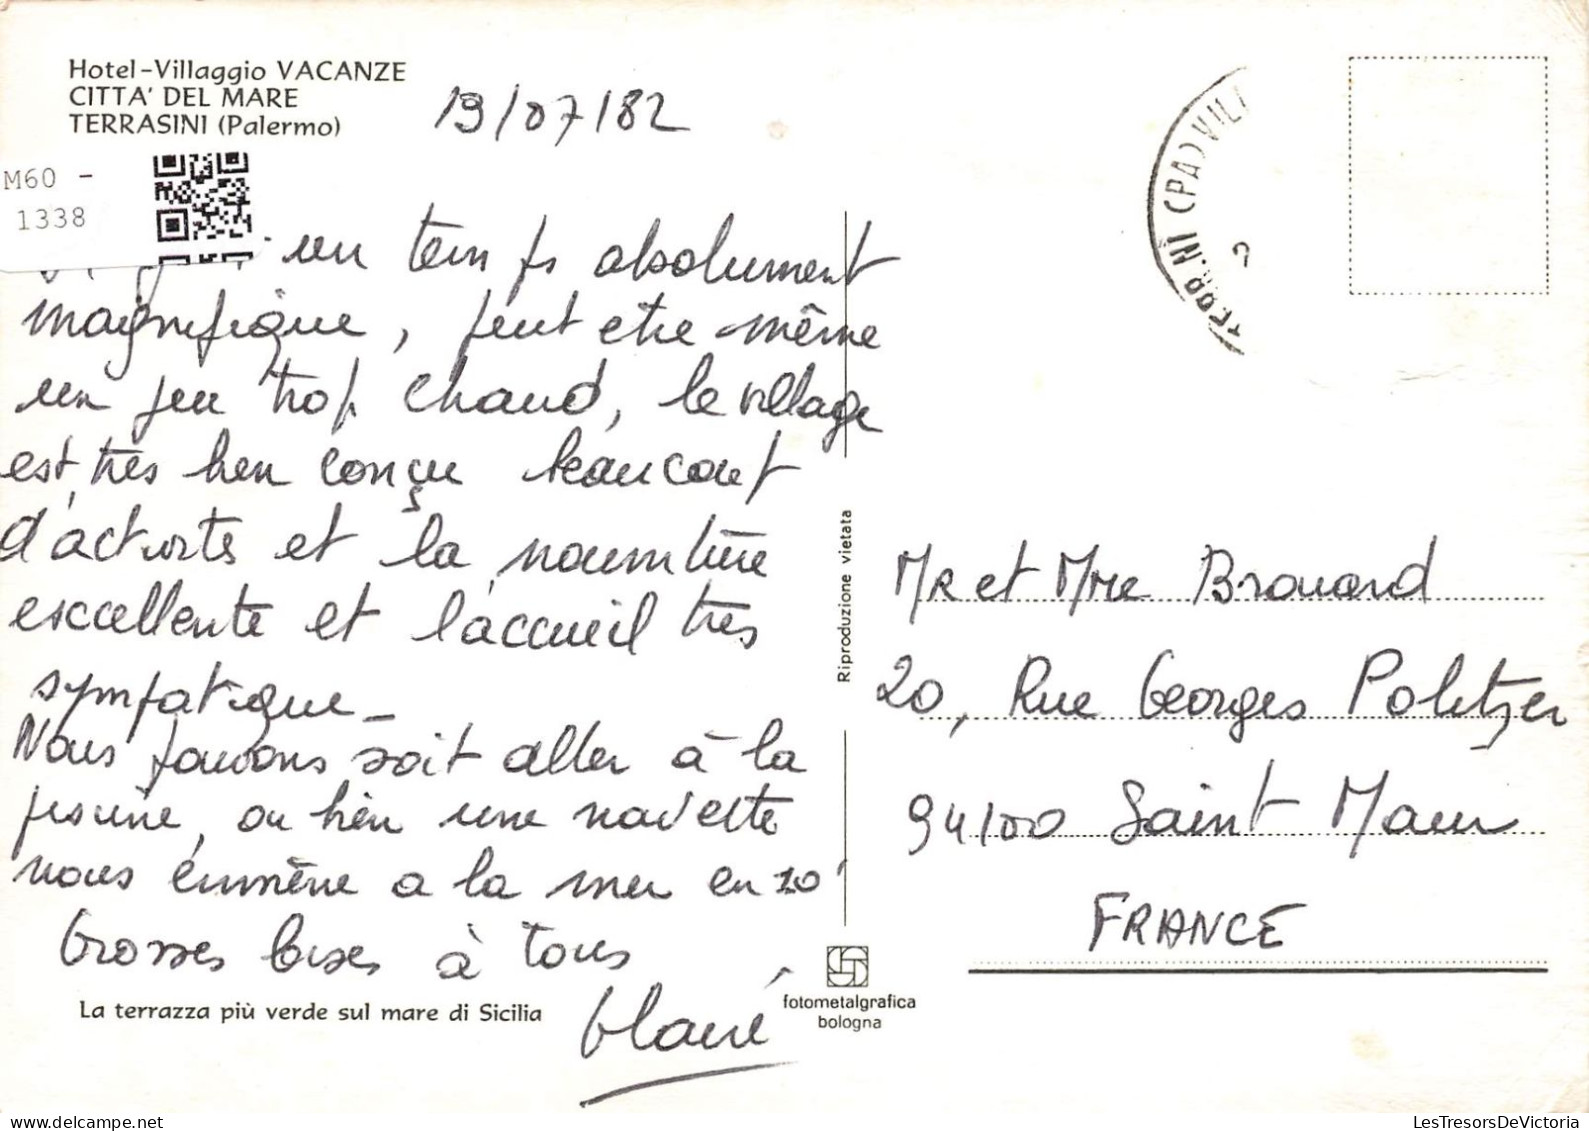 Hotel-Villaggio VACANZE
CITTA' DEL MARE
TERRASINI (Palermo)
19/07/82
M60 -
1338
un temps absolument
magnifique, peut etre même
un peu trop chaud, le village
est très bien conçu beaucoup
d'activités et la nourriture
excellente et l'accueil très
sympatique_
Nous pouvons soit aller à la
piscine, ou bien une navette
nous emmène a la mer en 10'
Grosses bises à tous
La terrazza più verde sul mare di Sicilia
Riproduzione vietata
fotometalgrafica
bologna
(PA) VILL
Mr et Mme Brouard
20, Rue Georges Politzer
94100 Saint Maur
FRANCE
LesTresorsDeVictoria